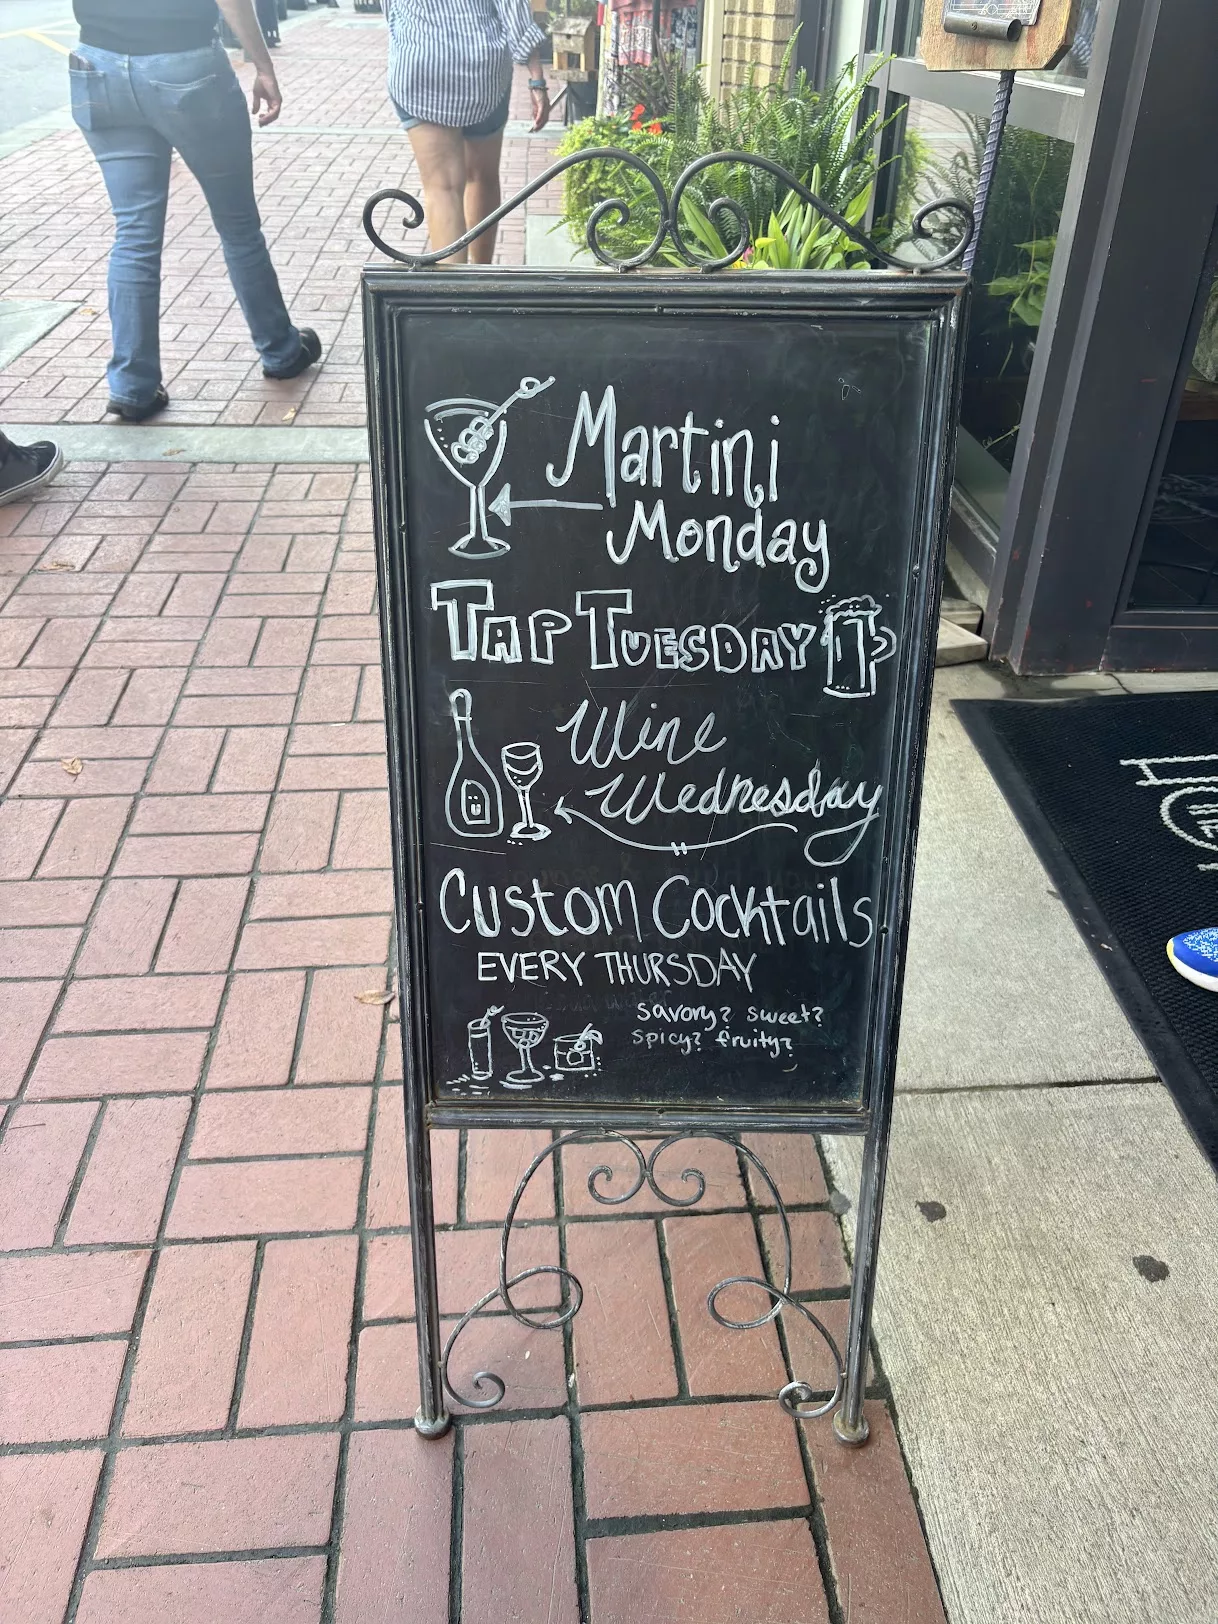 Martini
Monday
TAP TUESDAY
Wine
Wednesday
Custom Cocktails
EVERY THURSDAY
savory? sweet?
spicy? fruity?